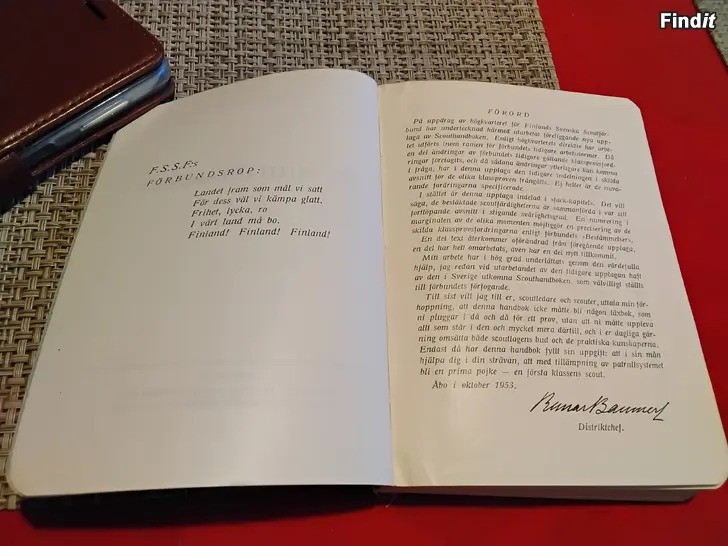 Findit
F.S.S.F:s
FÖRBUNDSROP:
Landet fram som mål vi satt
För dess väl vi kämpa glatt,
Frihet, lycka, ro
I vårt land må bo.
Finland! Finland! Finland!
FÖRORD
På uppdrag av högkvarteret för Finlands Svenska Scoutför-
bund har undertecknad härmed utarbetat föreliggande nya upp-
laga av Scouthandboken. Enligt högkvarterets direktiv har arbe-
tet utförts inom ramen för förbundets tidigare arbetsnormer. Då
en del ändringar av förbundets tidigare gällande klassprovsford-
ringar företagits, och då sådana ändringar ytterligare kan komma
i fråga, har i denna upplaga den tidigare indelningen i skilda
avsnitt för de olika klassproven frångåtts. Ej heller är de nuva-
rande fordringarna specificerade.
I stället är denna upplaga indelad i »fack-kapitel». Det vill
säga, de besläktade scoutfärdigheterna är sammanförda i var sitt
fortlöpande avsnitt i stigande svårighetsgrad. En numrering i
marginalen av de olika momenten möjliggör en precisering av de
skilda klassprovsfordringarna enligt förbundets »Bestämmelser».
En del text återkommer oförändrad från föregående upplaga,
en del har helt omarbetats, även har en del nytt tillkommit.
Min arbete har i hög grad underlättats genom den värdefulla
hjälp, jag redan vid utarbetandet av den tidigare upplagan haft
av den i Sverige utkomna Scouthandboken, som välvilligt ställts
till förbundets förfogande.
Till sist vill jag till er, scoutledare och scouter, uttala min för-
hoppning, att denna handbok icke måtte bli någon läxbok, som
ni pluggar i då och då för ett prov, utan att ni måtte uppleva
allt som står i den och mycket mera därtill, och i er dagliga gär-
ning omsätta både scoutlagens bud och de praktiska kunskaperna.
Endast då har denna handbok fyllt sin uppgift: att i sin mån
hjälpa dig i din strävan, att med tillämpning av patrullsystemet
bli en prima pojke — en första klassens scout.
Åbo i oktober 1953.
Distriktchef.